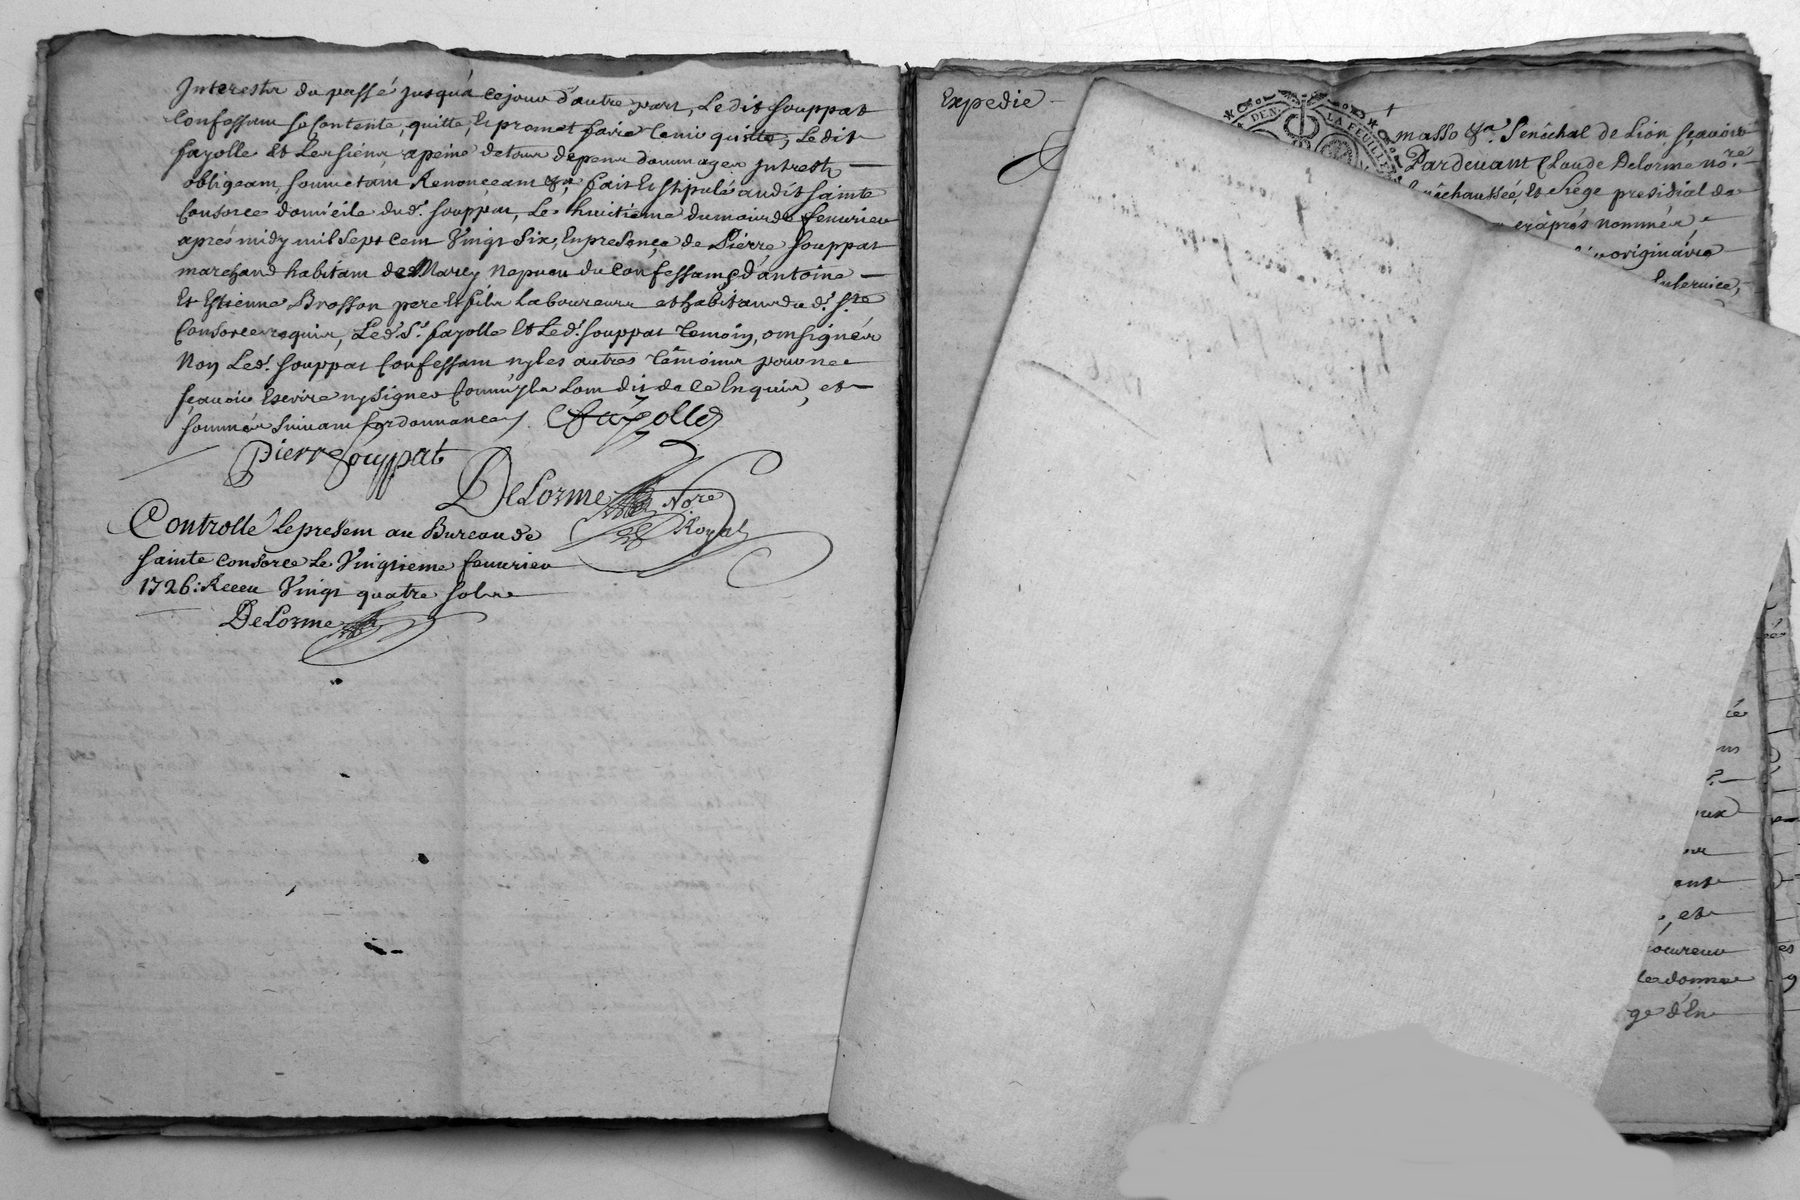 Interestz du passé jusqua cejour d'autre part, Le dit souppat
Confessant se Contente, quitte, Et promet faire tenir quitte, Le dit
fayolle Et Les siens a peine de tous depens dommages Intrestz
obligeant, soumetant Renonceant &a. fait Et stipulé audit sainte
Consorce domicile dud. souppat, Le huitieme du mois de feuvrier
aprés midy mil sept cent Vingt Six, En presence de Pierre souppat
marchand habitant de Marcy Nepveu du Confessant, d'antoine
Et Estienne Brosson pere Et fils Laboureurs et habitants du d. Ste
Consorce requis, Led. Sr. fayolle Et Le d. souppat temoin, ont signéz
Non Led. souppat Confessant ny les autres témoins pour ne
sçavoir Escrire ny signer Comm' ils L'ont dit de ce Enquis, et
sommés suivant L'ordonnance. Fayolle
Pierre Souppat
DeLorme No.re
Royal
Controllé Le present au Bureau de
sainte Consorce Le Vingtieme feuvrier
1726: Receu Vingt quatre sols
DeLorme
Expedie
DEN
LA FEUILLE
masso &a. Senéchal de Lion, sçavoir
Pardevant Claude Delorme no.re
néchaussée, Et Siége presidial de
cy aprés nommés,
originaire
Enservice,
ant
, et
leédonne
ge d'En